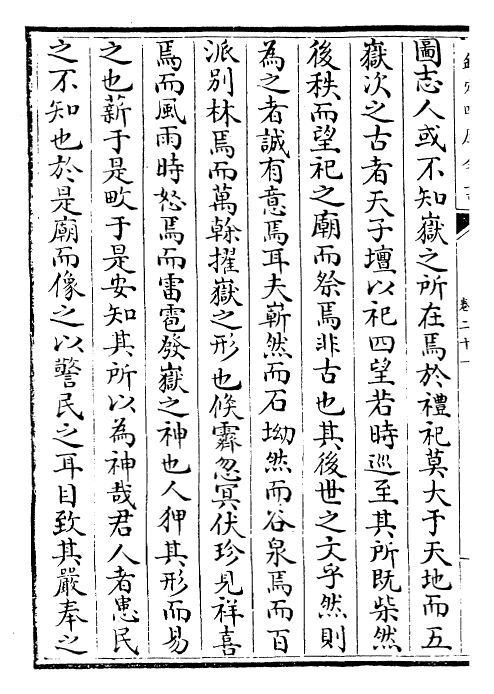 圖志人或不知嶽之所在焉於禮祀莫大于天地而五
嶽次之古者天子壇以祀四望若時巡至其所既柴然
後秩而望祀之廟而祭焉非古也其後世之文乎然則
為之者誠有意焉耳夫嶄然而石坳然而谷泉焉而百
派別林焉而萬榦擢嶽之形也倐霽忽冥伏珍見祥喜
焉而風雨時怒焉而雷雹發嶽之神也人狎其形而易
之也薪于是畋于是安知其所以為神哉君人者患民
之不知也於是廟而像之以警民之耳目致其嚴奉之
卷二十一